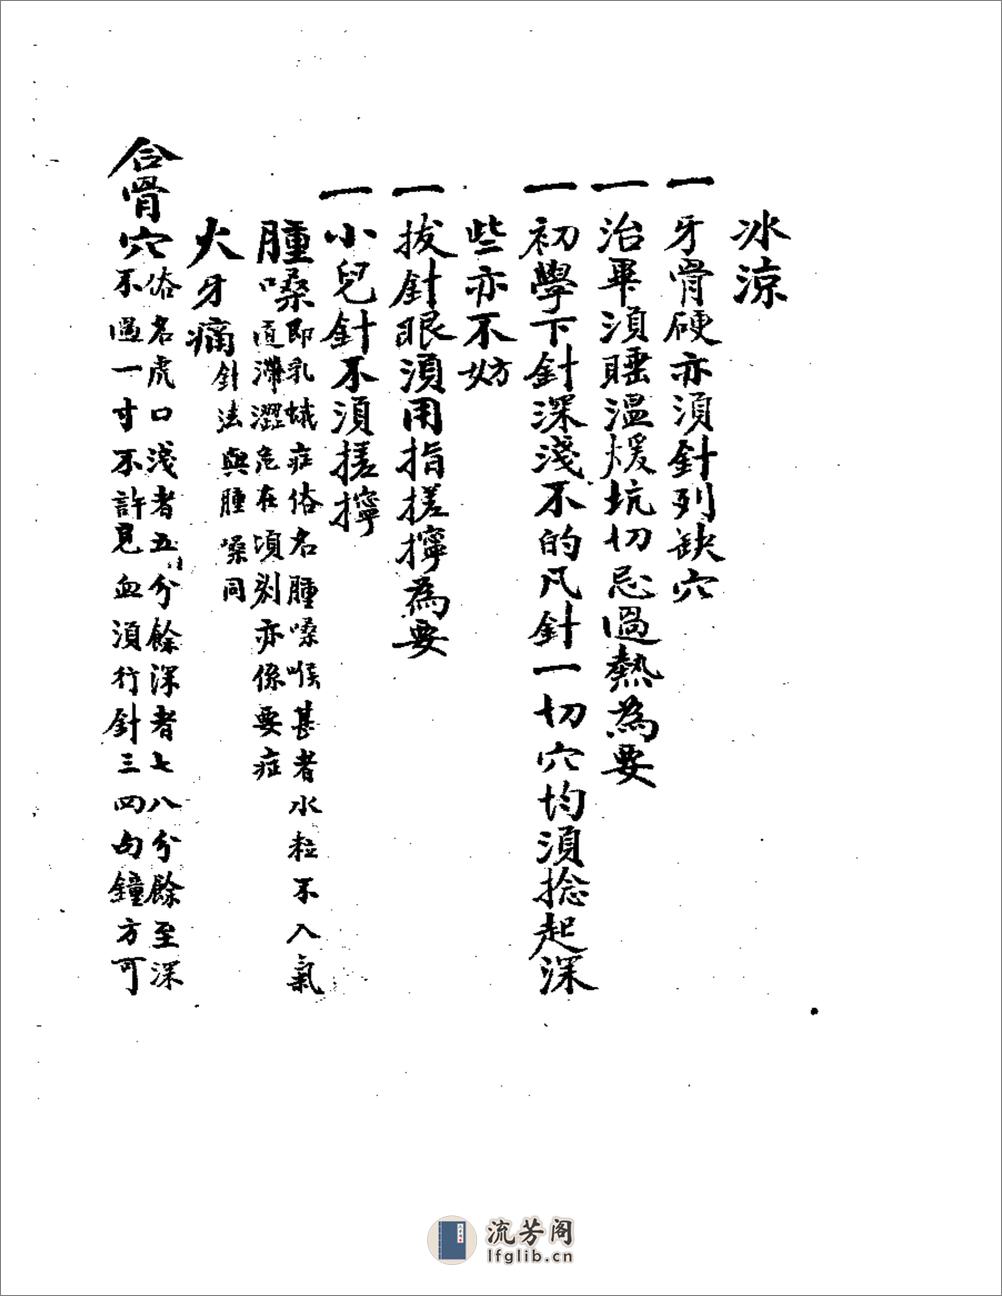 冰涼
一牙骨硬亦須針列缺穴
一治畢須睡溫煖坑切忌過熱為要
一初學下針深淺不的凡針一切穴均須捻起深
些亦不妨
一拔針眼須用指搓擰為要
一小兒針不須搓擰
腫嗓即乳蛾症俗名腫嗓喉甚者水粒不入氣
道滯澀危在頃刻亦係要症
大牙痛針法與腫嗓同
合骨穴俗名虎口淺者五分餘深者七八分餘至深
不過一寸不許見血須行針三四句鐘方可
流芳阁
lfglib.cn